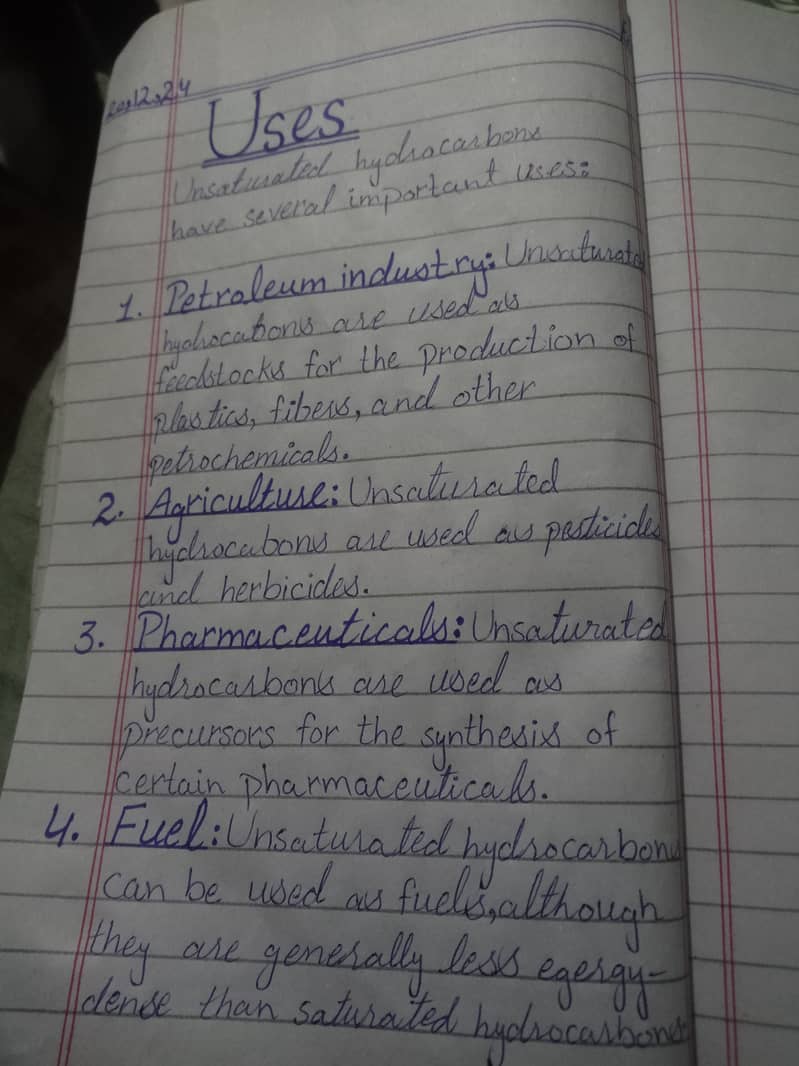 Uses
Unsaturated hydrocarbons
have several important uses:
1. Petroleum industry: Unsaturated
hydrocabons are used as
feedstocks for the production of
plastics, fibers, and other
petrochemicals.
2. Agriculture: Unsaturated
hydrocabons are used as pesticides
and herbicides.
3. Pharmaceuticals: Unsaturated
hydrocarbons are used as
precursors for the synthesis of
certain pharmaceuticals.
4. Fuel: Unsaturated hydrocarbons
can be used as fuels, although
they are generally less egergy-
dense than saturated hydrocarbons